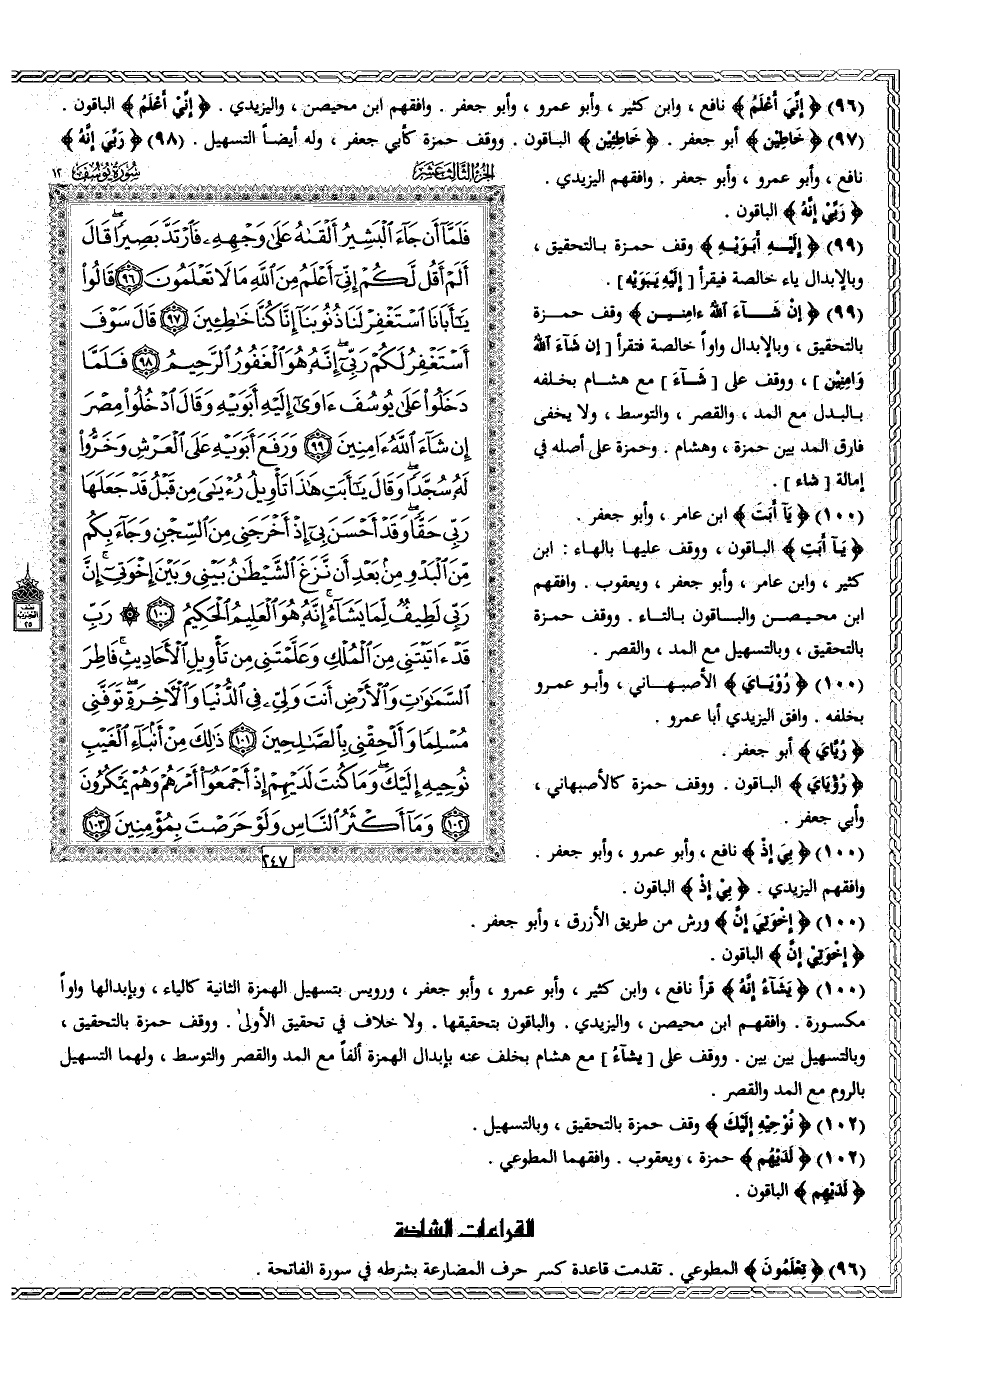 (٩٦) ﴿ إِنِّيَ أَعْلَمُ ﴾ نافع ، وابن كثير ، وأبو عمرو ، وأبو جعفر . وافقهم ابن محيصن ، واليزيدي . ﴿ إِنِّيْ أَعْلَمُ ﴾ الباقون .
(٩٧) ﴿ خَاطِيْن ﴾ أبو جعفر . ﴿ خَاطِئِيْن ﴾ الباقون . ووقف حمزة كأبي جعفر ، وله أيضاً التسهيل . (٩٨) ﴿ رَبِّيَ إِنَّهُ ﴾
نافع ، وأبو عمرو ، وأبو جعفر . وافقهم اليزيدي .
﴿ رَبِّيْ إِنَّهُ ﴾ الباقون .
(٩٩) ﴿ إِلَيْهِ أَبَوَيْهِ ﴾ وقف حمزة بالتحقيق ،
وبالإبدال ياء خالصة فيقرأ [ إِلَيْهِ يَبَوَيْه ] .
(٩٩) ﴿ إِنْ شَآءَ اللهُ ءامِنِين ﴾ وقف حمزة
بالتحقيق ، وبالإبدال واواً خالصة فتقرأ [ إن شَآءَ اللهُ
وَامِنِيْن ] ، ووقف على [ شَآءَ ] مع هشام بخلفه
بالبدل مع المد ، والقصر ، والتوسط ، ولا يخفى
فارق المد بين حمزة ، وهشام . وحمزة على أصله في
إمالة [ شاء ] .
(١٠٠) ﴿ يَآ أَبَتَ ﴾ ابن عامر ، وأبو جعفر .
﴿ يَآ أَبَتِ ﴾ الباقون ، ووقف عليها بالهاء : ابن
كثير ، وابن عامر ، وأبو جعفر ، ويعقوب . وافقهم
ابن محيصن والباقون بالتاء . ووقف حمزة
بالتحقيق ، وبالتسهيل مع المد ، والقصر .
(١٠٠) ﴿ رُوْيَاي ﴾ الأصبهاني ، وأبو عمرو
بخلفه . وافق اليزيدي أبا عمرو .
﴿ رُيَّاي ﴾ أبو جعفر .
﴿ رُؤْيَاي ﴾ الباقون . ووقف حمزة كالأصبهاني ،
وأبي جعفر .
(١٠٠) ﴿ بِيَ إِذْ ﴾ نافع ، وأبو عمرو ، وأبو جعفر .
وافقهم اليزيدي . ﴿ بِيْ إِذْ ﴾ الباقون .
(١٠٠) ﴿ إِخْوَتِيَ إِنَّ ﴾ ورش من طريق الأزرق ، وأبو جعفر .
﴿ إِخْوَتِيْ إِنَّ ﴾ الباقون .
(١٠٠) ﴿ يَشَآءُ إِنَّهُ ﴾ قرأ نافع ، وابن كثير ، وأبو عمرو ، وأبو جعفر ، ورويس بتسهيل الهمزة الثانية كالياء ، وبإبدالها واواً
مكسورة . وافقهم ابن محيصن ، واليزيدي . والباقون بتحقيقها . ولا خلاف في تحقيق الأولى . ووقف حمزة بالتحقيق ،
وبالتسهيل بين بين . ووقف على [ يشآءُ ] مع هشام بخلف عنه بإبدال الهمزة ألفاً مع المد والقصر والتوسط ، ولهما التسهيل
بالروم مع المد والقصر .
(١٠٢) ﴿ نُوْحِيْهِ إِلَيْكَ ﴾ وقف حمزة بالتحقيق ، وبالتسهيل .
(١٠٢) ﴿ لَدَيْهُم ﴾ حمزة ، ويعقوب . وافقهما المطوعي .
﴿ لَدَيْهِم ﴾ الباقون .
القراءات الشاذة
(٩٦) ﴿ تِعْلَمُونَ ﴾ المطوعي . تقدمت قاعدة كسر حرف المضارعة بشرطه في سورة الفاتحة .
الجزء الثالث عشر
سورة يوسف ١٢
فَلَمَّا أَن جَاءَ الْبَشِيرُ أَلْقَىٰهُ عَلَىٰ وَجْهِهِۦ فَارْتَدَّ بَصِيرًا ۖ قَالَ
أَلَمْ أَقُل لَّكُمْ إِنِّي أَعْلَمُ مِنَ اللَّهِ مَا لَا تَعْلَمُونَ ٩٦ قَالُوا
يَٰأَبَانَا اسْتَغْفِرْ لَنَا ذُنُوبَنَا إِنَّا كُنَّا خَٰطِـِٔينَ ٩٧ قَالَ سَوْفَ
أَسْتَغْفِرُ لَكُمْ رَبِّي ۖ إِنَّهُ هُوَ الْغَفُورُ الرَّحِيمُ ٩٨ فَلَمَّا
دَخَلُوا عَلَىٰ يُوسُفَ ءَاوَىٰ إِلَيْهِ أَبَوَيْهِ وَقَالَ ادْخُلُوا مِصْرَ
إِن شَاءَ اللَّهُ ءَامِنِينَ ٩٩ وَرَفَعَ أَبَوَيْهِ عَلَى الْعَرْشِ وَخَرُّوا
لَهُ سُجَّدًا ۖ وَقَالَ يَٰأَبَتِ هَٰذَا تَأْوِيلُ رُءْيَٰيَ مِن قَبْلُ قَدْ جَعَلَهَا
رَبِّي حَقًّا ۖ وَقَدْ أَحْسَنَ بِي إِذْ أَخْرَجَنِي مِنَ السِّجْنِ وَجَاءَ بِكُم
مِّنَ الْبَدْوِ مِنۢ بَعْدِ أَن نَّزَغَ الشَّيْطَٰنُ بَيْنِي وَبَيْنَ إِخْوَتِي ۚ إِنَّ
رَبِّي لَطِيفٌ لِّمَا يَشَاءُ ۚ إِنَّهُ هُوَ الْعَلِيمُ الْحَكِيمُ ١٠٠ ۞ رَبِّ
قَدْ ءَاتَيْتَنِي مِنَ الْمُلْكِ وَعَلَّمْتَنِي مِن تَأْوِيلِ الْأَحَادِيثِ ۚ فَاطِرَ
السَّمَٰوَٰتِ وَالْأَرْضِ أَنتَ وَلِيِّۦ فِي الدُّنْيَا وَالْآخِرَةِ ۖ تَوَفَّنِي
مُسْلِمًا وَأَلْحِقْنِي بِالصَّٰلِحِينَ ١٠١ ذَٰلِكَ مِنْ أَنۢبَاءِ الْغَيْبِ
نُوحِيهِ إِلَيْكَ ۖ وَمَا كُنتَ لَدَيْهِمْ إِذْ أَجْمَعُوا أَمْرَهُمْ وَهُمْ يَمْكُرُونَ
١٠٢ وَمَا أَكْثَرُ النَّاسِ وَلَوْ حَرَصْتَ بِمُؤْمِنِينَ ١٠٣
٢٤٧
٢٥